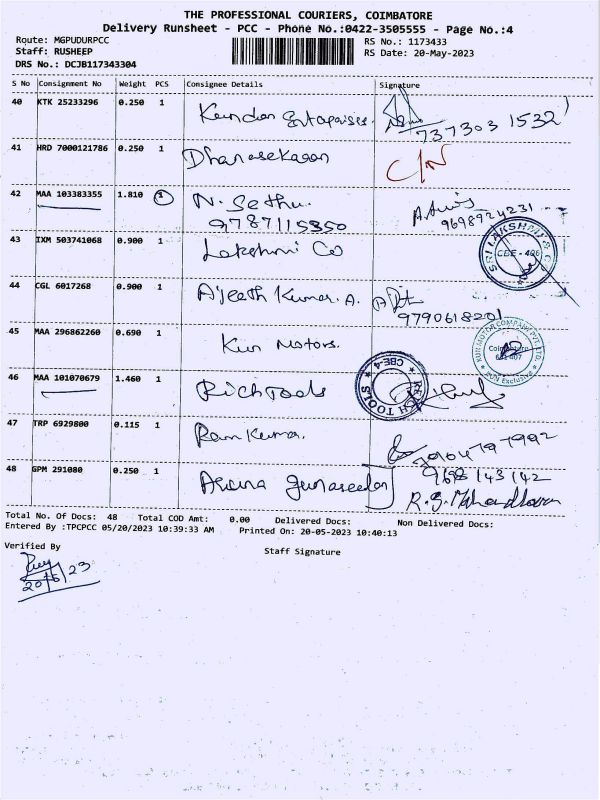 THE PROFESSIONAL COURIERS, COIMBATORE
Delivery Runsheet - PCC - Phone No.:0422-3505555 - Page No.:4
Route: MGPUDURPCC
RS No.: 1173433
Staff: RUSHEEP
RS Date: 20-May-2023
DRS No.: DCJB117343304
S No Consignment No Weight PCS Consignee Details Signature
40 KTK 25233296 0.250 1 Kundan Enterprises.
737303 1532
41 HRD 7000121786 0.250 1 Dhanasekaran C/N
42 MAA 103383355 1.810 1 N. Sethu.
9787115350 9698924231
43 IXM 503741068 0.900 1 Lakshmi Co
SRI LAKSHMI & CO
CBE - 406
44 CGL 6017268 0.900 1 Ajeeth Kumar. A.
9790618201
45 MAA 296862260 0.690 1 Kun Motors.
KUN MOTOR COMPANY PVT. LTD.
KUN Exclusive
46 MAA 101070679 1.460 1 Rich Tools
RICH TOOLS
CBE-4
47 TRP 6929800 0.115 1 Ram Kumar.
48 GPM 291080 0.250 1 Aruna Gunaseelan
968143142
Total No. Of Docs: 48 Total COD Amt: 0.00 Delivered Docs: Non Delivered Docs:
Entered By :TPCPCC 05/20/2023 10:39:33 AM Printed On: 20-05-2023 10:40:13
Verified By
Staff Signature
20/5/23